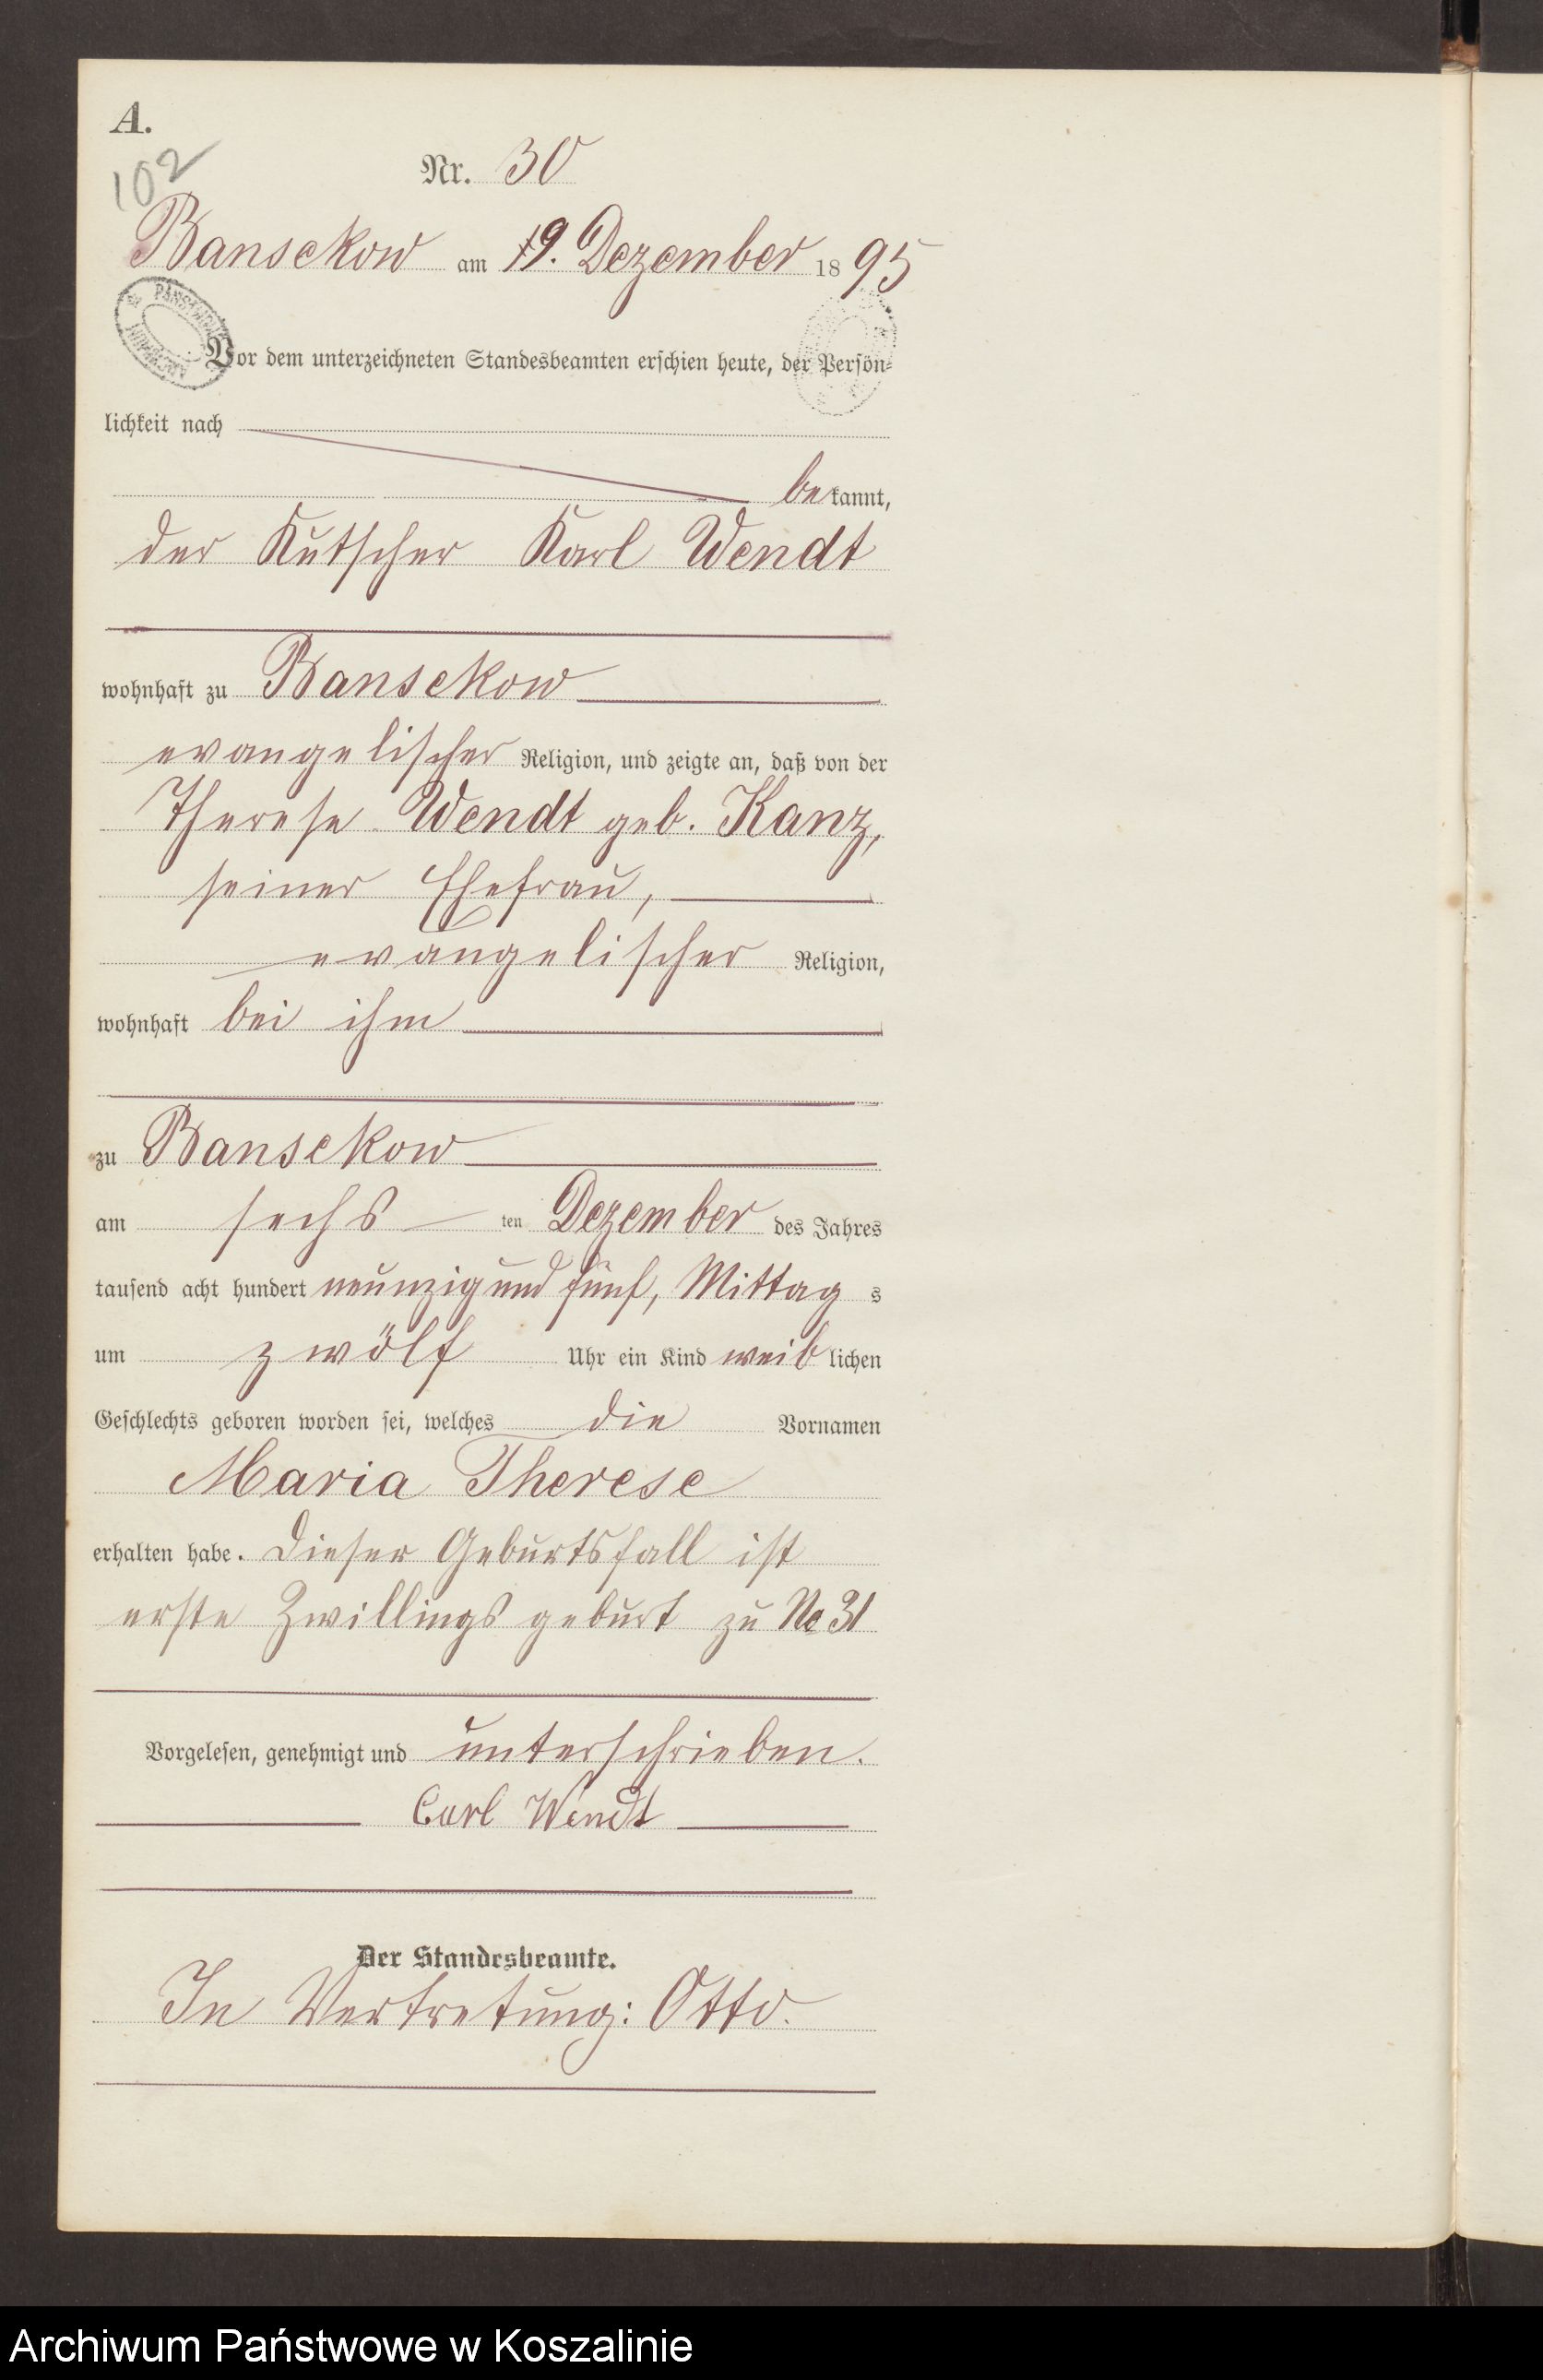 A.
102
Nr. 30
Bansekow am 19. Dezember 1895
Vor dem unterzeichneten Standesbeamten erschien heute, der Persön-
lichkeit nach
bekannt,
der Kutscher Karl Wendt
wohnhaft zu Bansekow
evangelischer Religion, und zeigte an, daß von der
Therese Wendt geb. Kanz,
seiner Ehefrau,
evangelischer Religion,
wohnhaft bei ihm
zu Bansekow
am sechsten Dezember des Jahres
tausend acht hundert neunzig und fünf, Mittags
um zwölf Uhr ein Kind weiblichen
Geschlechts geboren worden sei, welches die Vornamen
Maria Therese
erhalten habe. Dieser Geburtsfall ist
erste Zwillingsgeburt zu No 31
Vorgelesen, genehmigt und unterschrieben.
Carl Wendt
Der Standesbeamte.
In Vertretung: Otto.
Archiwum Państwowe w Koszalinie